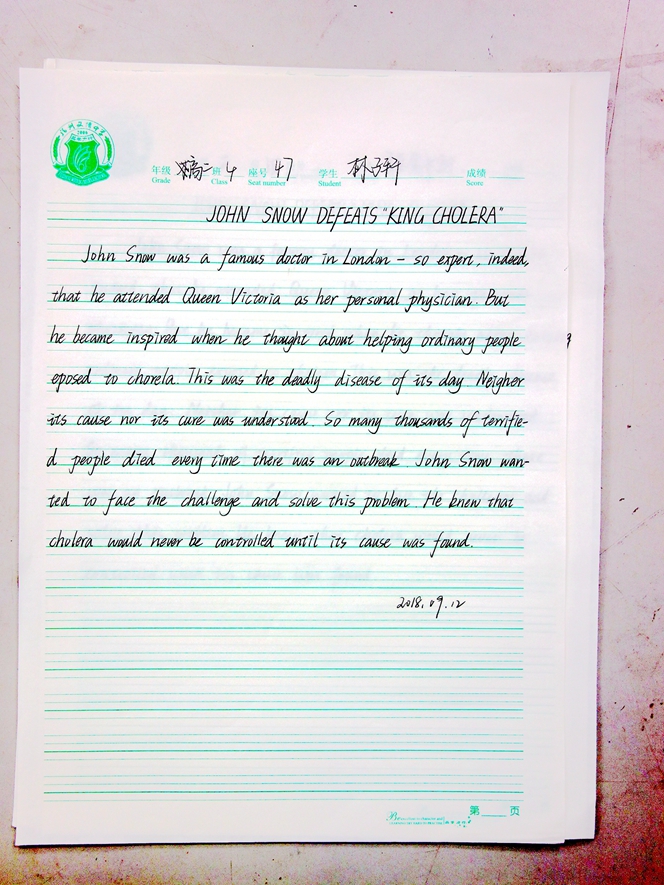 年级 高二 班 4 座号 47 学生 林子轩 成绩
Grade Class Seat number Student Score
JOHN SNOW DEFEATS "KING CHOLERA"
John Snow was a famous doctor in London – so expert, indeed,
that he attended Queen Victoria as her personal physician. But
he became inspired when he thought about helping ordinary people
eposed to chorela. This was the deadly disease of its day Neigher
its cause nor its cure was understood. So many thousands of terrifie-
d people died every time there was an outbreak. John Snow wan-
ted to face the challenge and solve this problem. He knew that
cholera would never be controlled until its cause was found.
2018.09.12
第 页